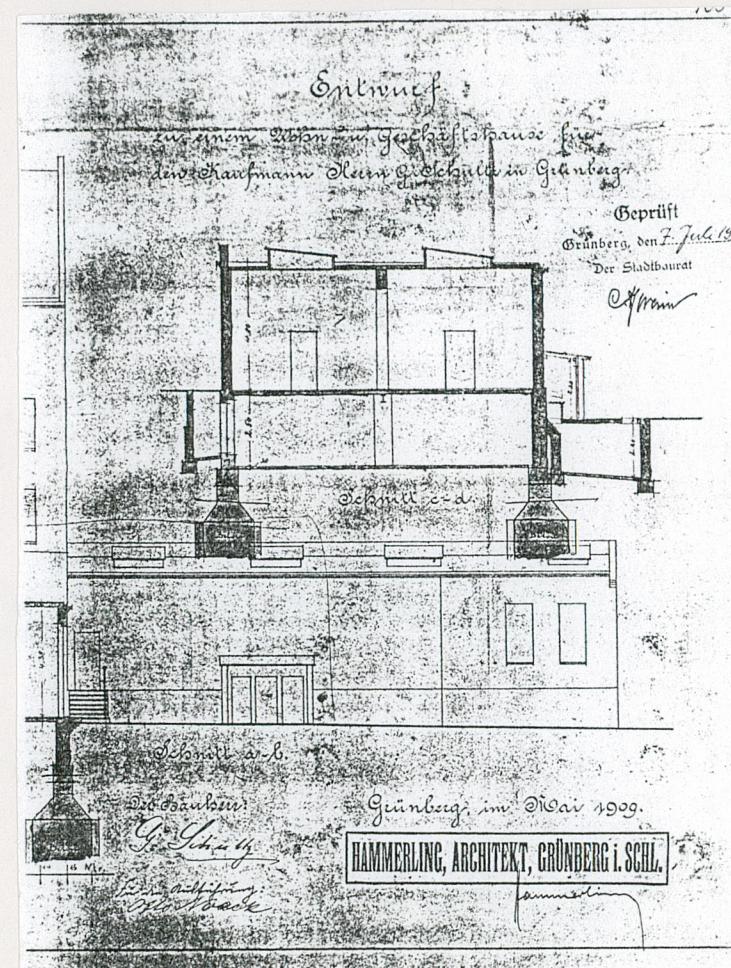 Entwurf
zu einem Wohn- u. Geschäftshause für
den Kaufmann Herrn G. Schultz in Grünberg.
Geprüft
Grünberg, den 7. Juli 19
Der Stadtbaurat
Schnitt c-d.
Schnitt a-b.
Der Bauherr:
G. Schultz
Grünberg, im Mai 1909.
HAMMERLING, ARCHITEKT, GRÜNBERG i. SCHL.
Für die Ausführung:
Hammerling